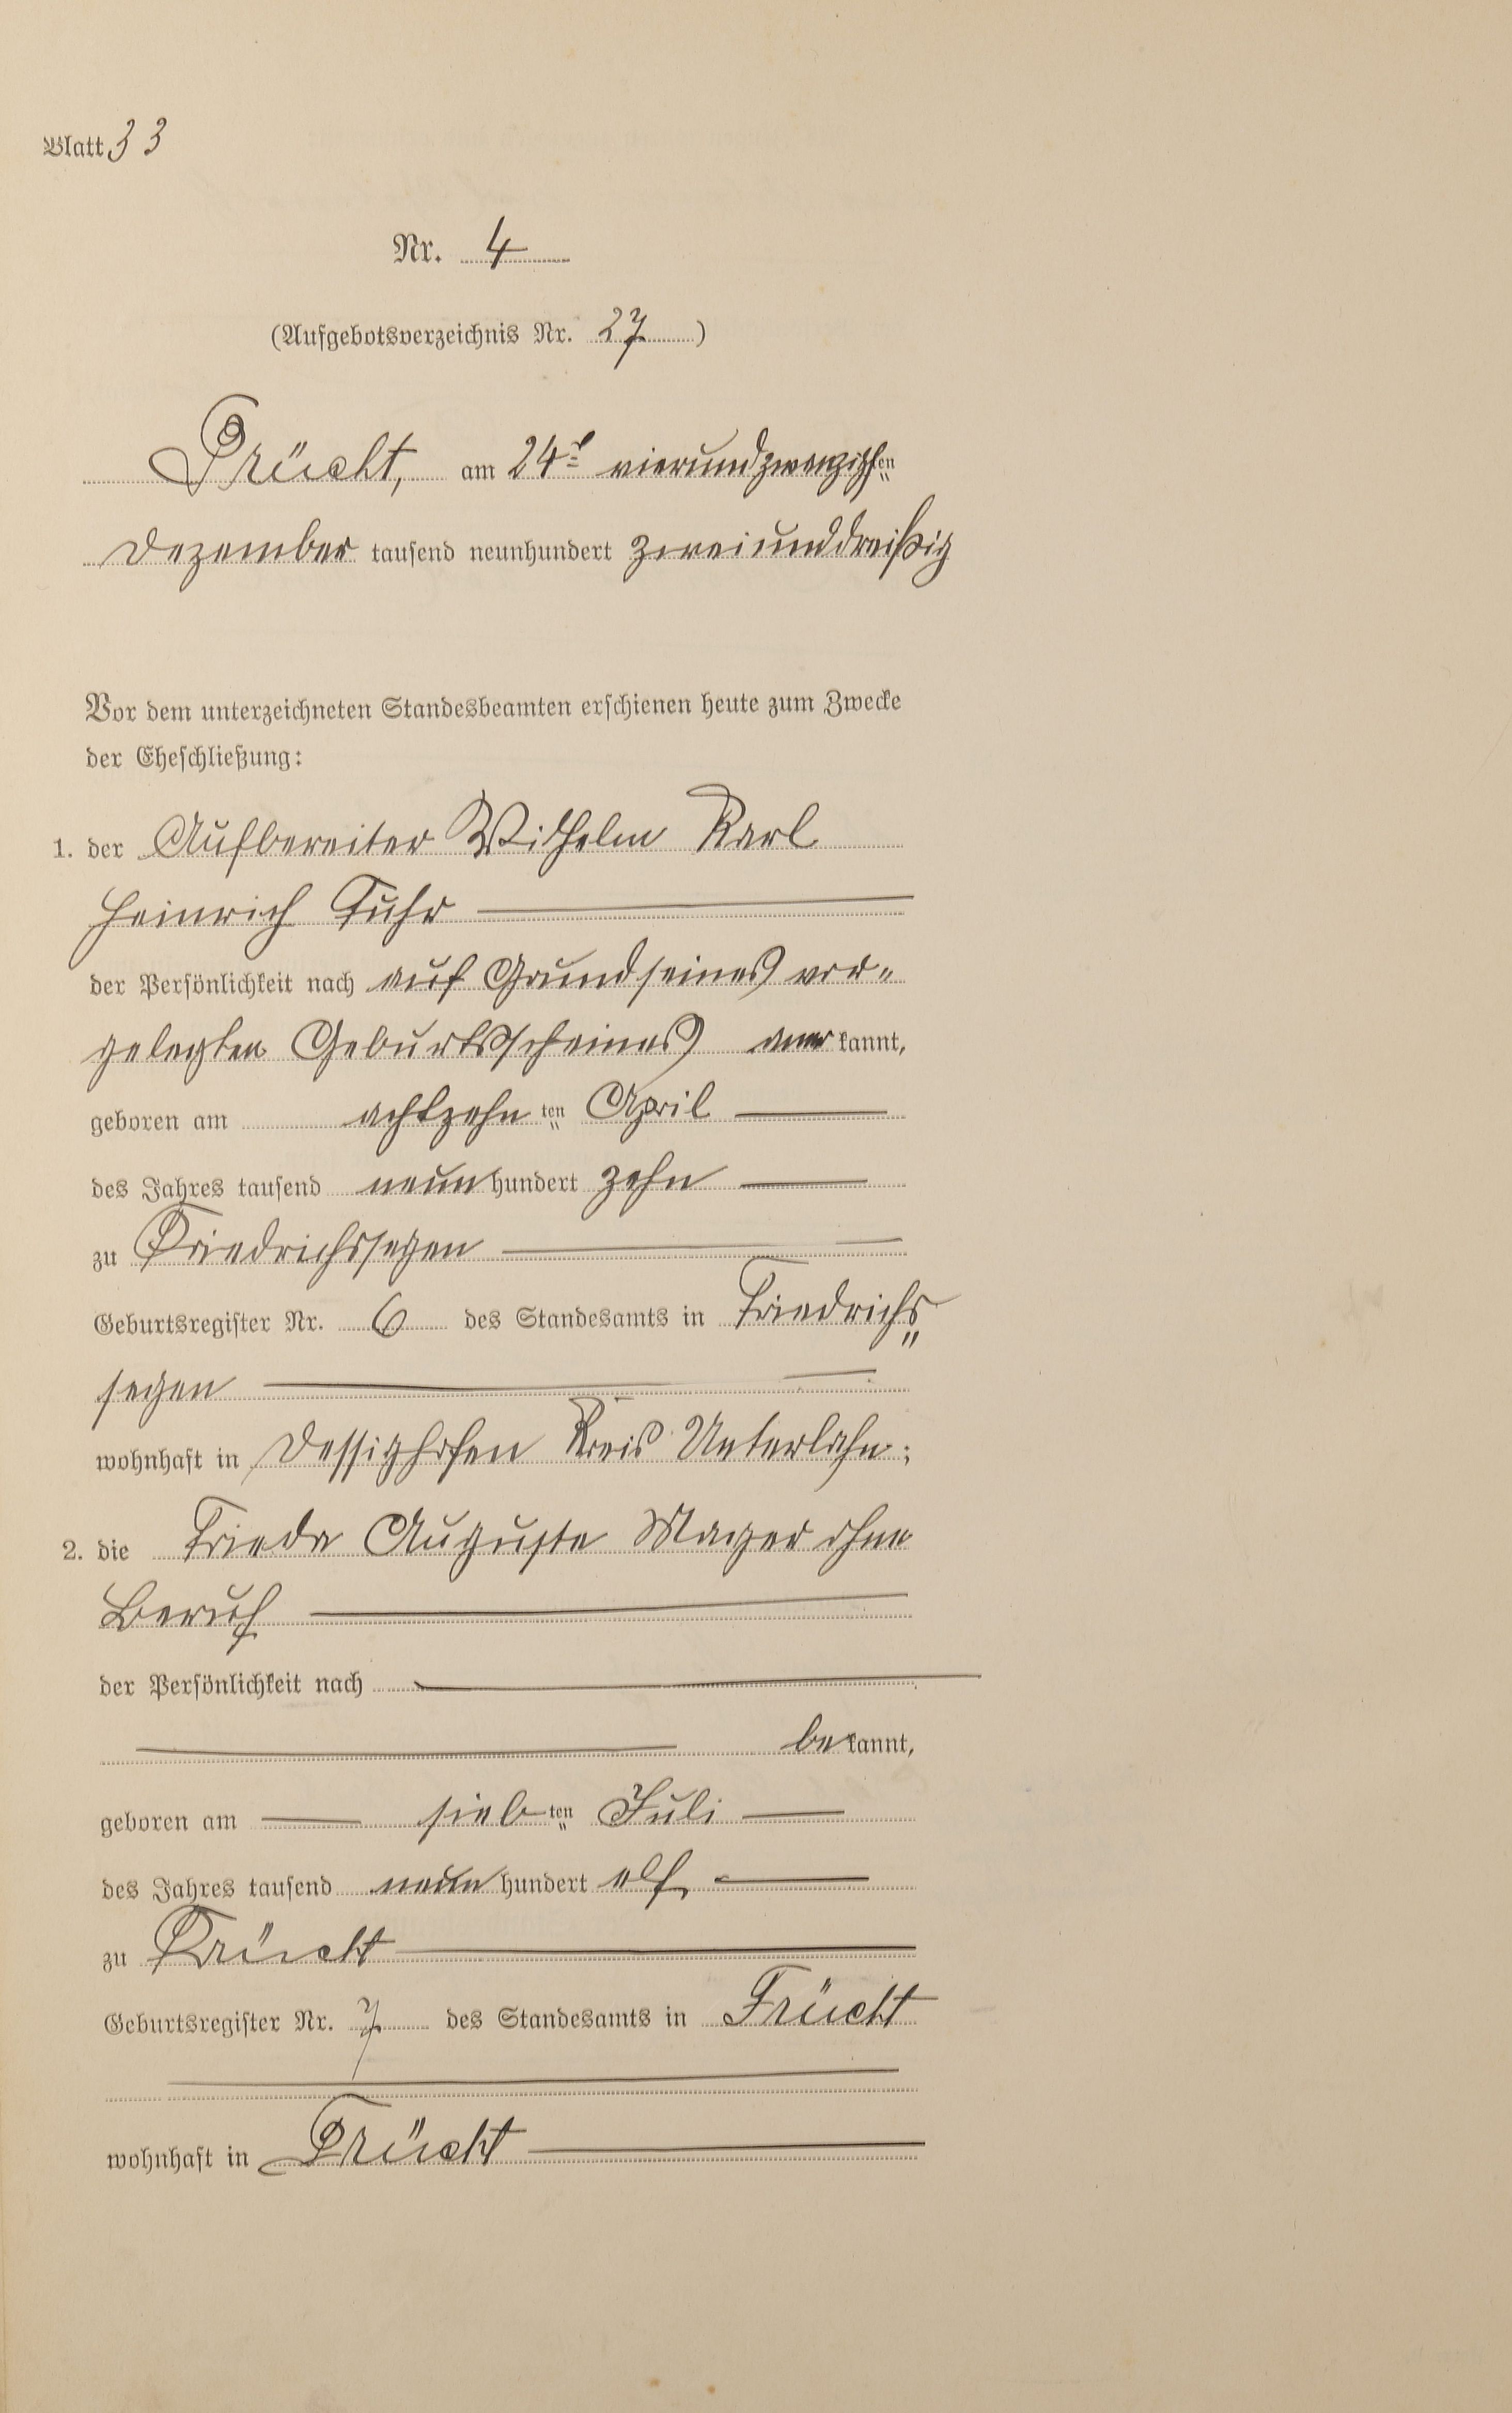 Blatt 33
Nr. 4
(Aufgebotsverzeichnis Nr. 27)
Frücht, am 24t vierundzwanzigsten
Dezember tausend neunhundert zweiunddreißig
Vor dem unterzeichneten Standesbeamten erschienen heute zum Zwecke
der Eheschließung:
1. der Aufbereiter Wilhelm Karl
Heinrich Fuhr
der Persönlichkeit nach auf Grund seines vor-
gelegten Geburtsscheines anerkannt,
geboren am achtzehnten April
des Jahres tausend neunhundert zehn
zu Friedrichssegen
Geburtsregister Nr. 6 des Standesamts in Friedrichs-
segen
wohnhaft in Dessighofen Kreis Unterlahn;
2. die Frieda Auguste Mager ohne
Beruf
der Persönlichkeit nach
bekannt,
geboren am siebten Juli
des Jahres tausend neunhundert elf
zu Frücht
Geburtsregister Nr. 7 des Standesamts in Frücht
wohnhaft in Frücht